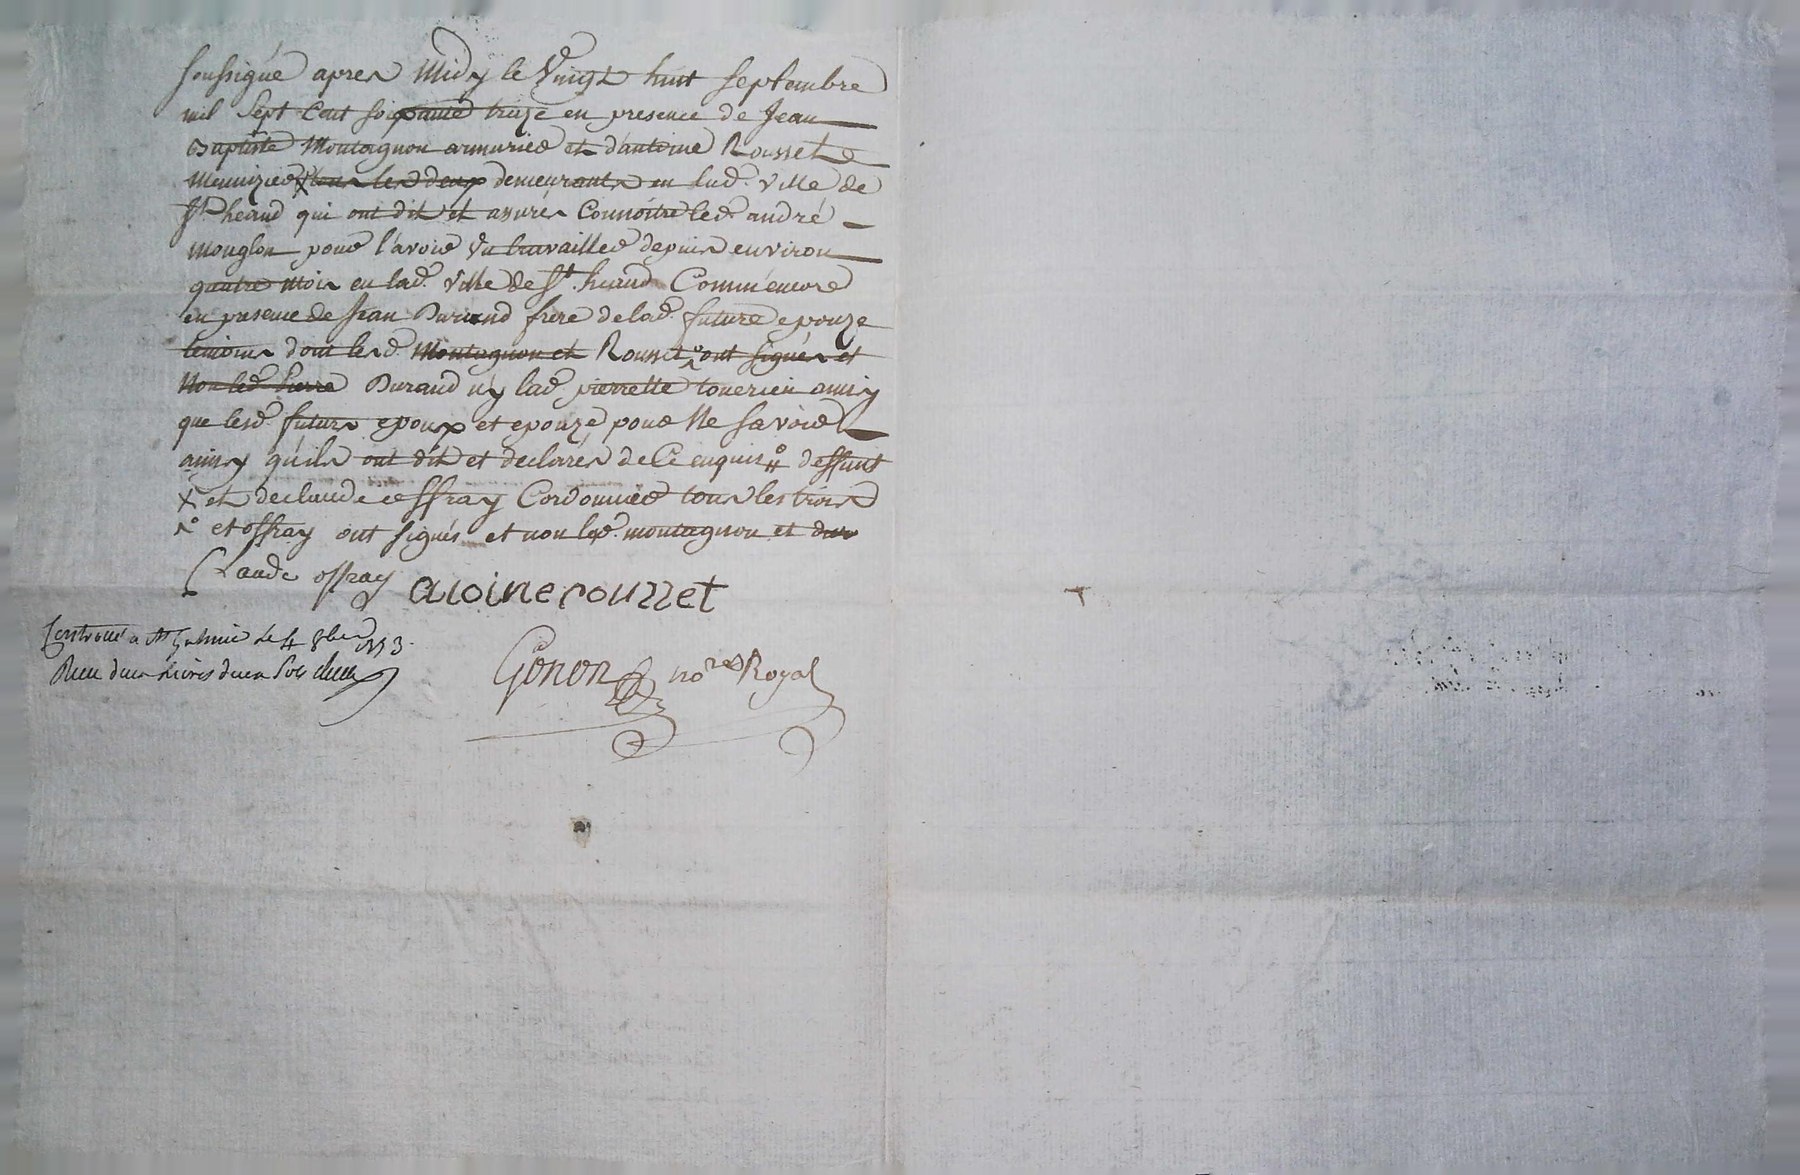 soussigné apres Midy le Vingt huit septembre
mil sept Cent soixante treize en presence de Jean
Baptiste Montagnon armurier et d'antoine Rousset
Menuizier x tous les deux demeurants en lad. ville de
St. heand qui ont dit et assurés Connoitre led. andré
Mouglon pour l'avoir vu travailler depuis environ
quatre mois en lad. ville de St. heand Comm'encore
en presence de Jean Durand frere de lad. future epouze
temoins dont lesd. Montagnon et Rousset ont signés et
Non led. Pierre Durand n'y lad. pierrette ainsy
que lesd. futurs epoux et epouze pour Ne savoir
ainsy qu'ils ont dit et declarés de Ce enquis deffunt
x et de claude offray Cordonnier tous les trois
et offray ont signés et non led. montagnon et
Claude offray
aioine rouzzet
Controllé a St Galmie le 4 8bre 1773.
Reçu
Gonon no.re Royal